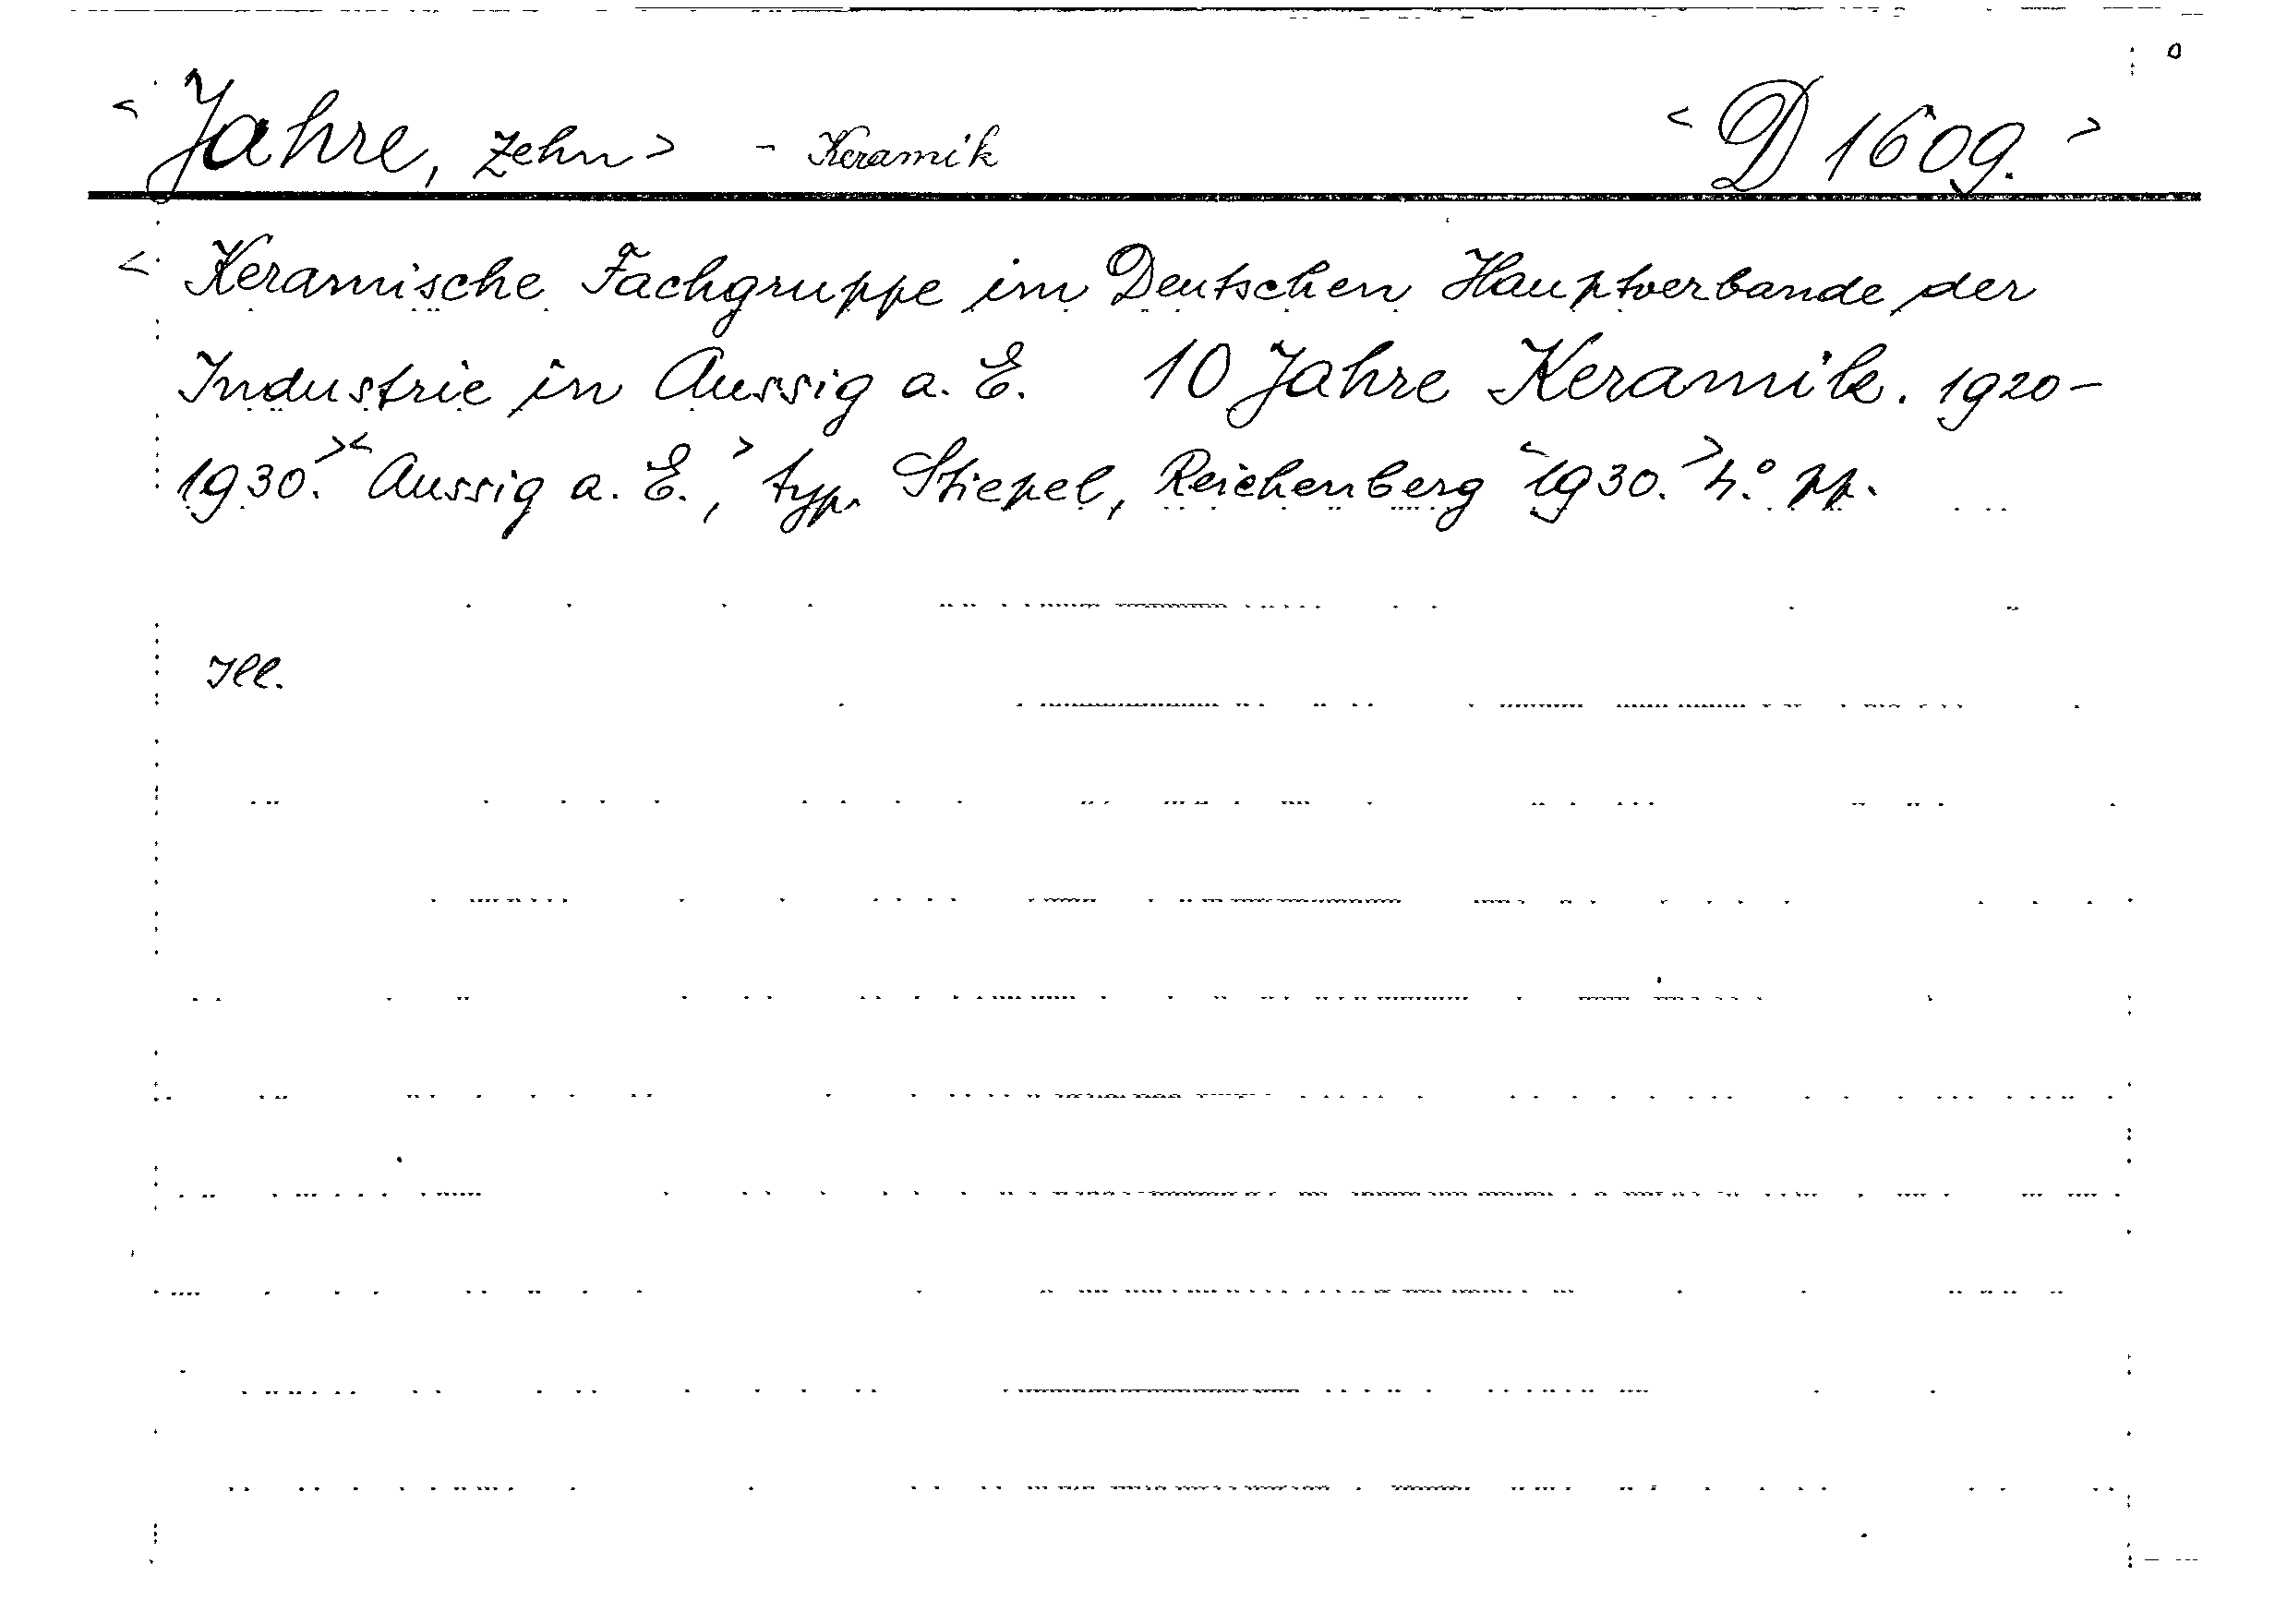 <Jahre, zehn> - Keramik <D 1609.>
<Keramische Fachgruppe im Deutschen Hauptverbande der
Industrie in Aussig a. E. 10 Jahre Keramik. 1920-
1930.><Aussig a. E.,> typ. Stiepel, Reichenberg <1930.> 4.° pp.
Ill.